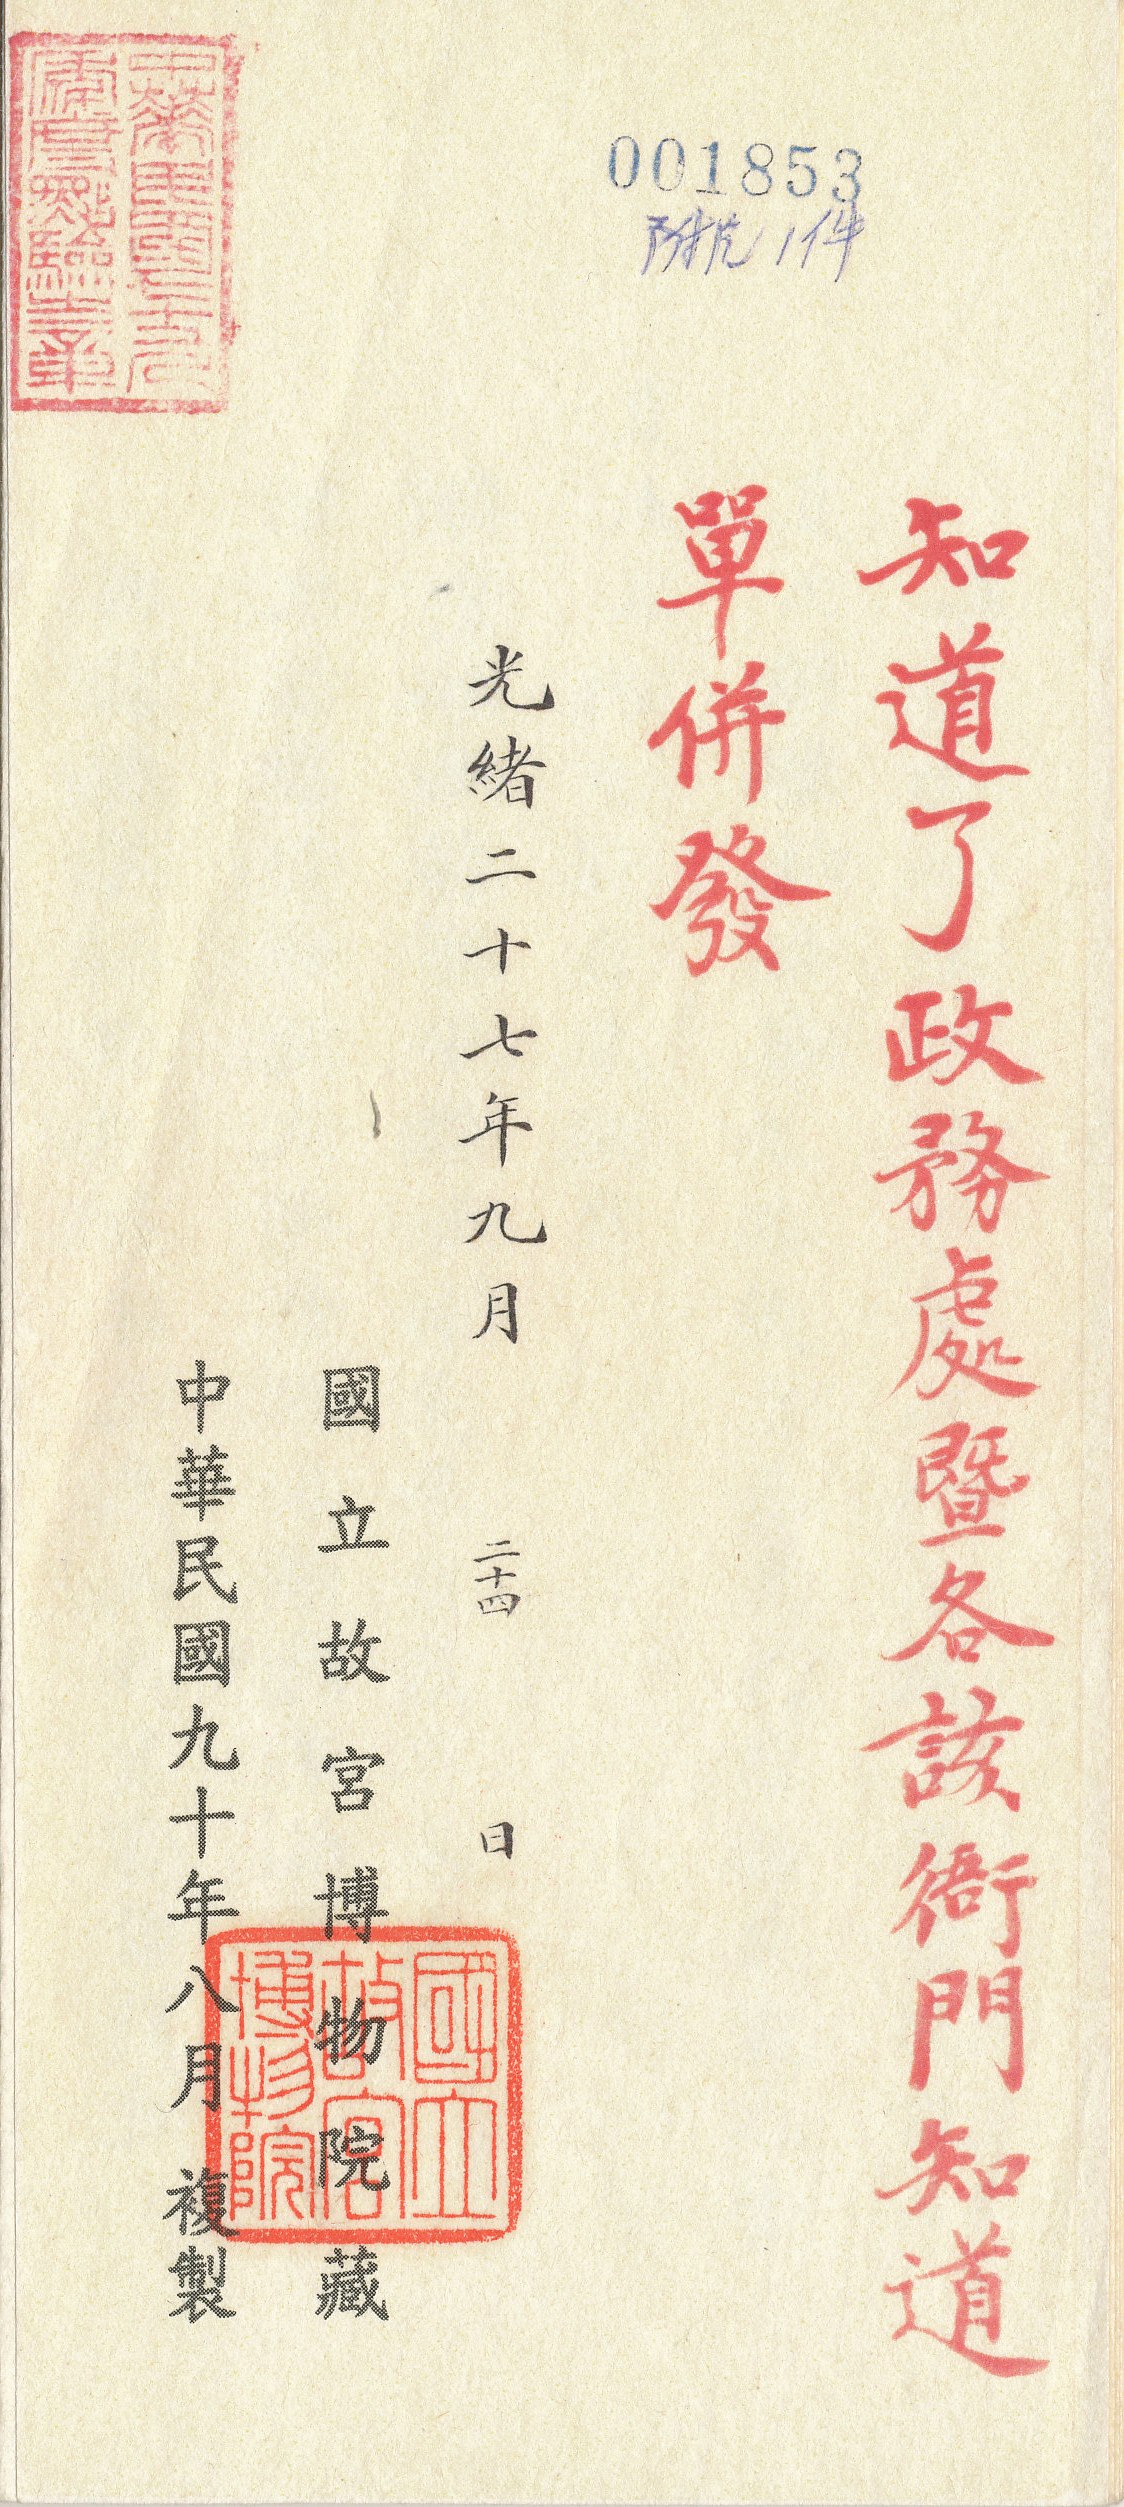 001853
知道了政務處暨各該衙門知道
單併發
光緒二十七年九月 二十四 日
國立故宮博物院藏
中華民國九十年八月複製
國立
故宮
博物院